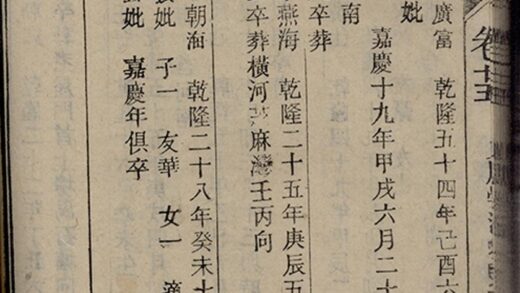 卷廿五
廣富 乾隆五十四年己酉六
妣 嘉慶十九年甲戌六月二十
南
卒葬
燕海 乾隆二十五年庚辰五
卒葬橫河 麻灣壬丙向
朝海 乾隆二十八年癸未七
妣 子一 友華 女一 適
妣 嘉慶年俱卒